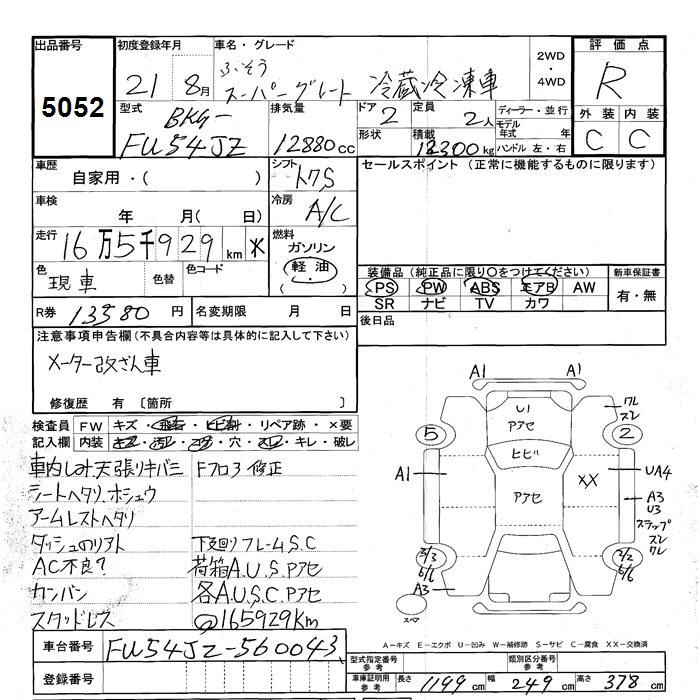 出品番号 初度登録年月 車名・グレード 2WD・4WD 評価点
5052 21 8月 ふそう スーパーグレート 冷蔵冷凍車 R
型式 排気量 ドア 定員 ディーラー・並行 外装 内装
BKG- FU54JZ 12880cc 2 2人 モデル年式 年 C C
形状 積載 12300kg ハンドル 左・右
車歴 シフト セールスポイント (正常に機能するものに限ります)
自家用・( ) トクS
車検 冷房
年 月( 日) A/C
走行 燃料
16万5千929km * ガソリン
色 色替 色コード 軽油・
現車
装備品 (純正品に限り〇をつけてください) 新車保証書
PS PW ABS エアB AW 有・無
SR ナビ TV カワ
R券 13580円 名変期限 月 日
後日品
注意事項申告欄 (不具合内容等は具体的に記入して下さい)
メーター改ざん車
修復歴 有 〔箇所
検査員 FW キズ・飛石・ヒビ割・リペア跡・×要
記入欄 内装 キズ・汚レ・コゲ・穴・スレ・キレ・破レ
車内しみ 天張りキバミ Fフロア 修正
シートヘタリ、ホシュウ
アームレストヘタリ
ダッシュのリフト 下廻りフレームS.C
AC不良? 荷箱A.U.S.Pアセ
カンバン 各A.U.S.C.Pアセ
スタッドレス @165929km
A1 A1
U1 Pアセ ワレ スレ
5 ヒビ 2
A1 Pアセ XX UA4
A3 U3
スラップ スレ ワレ
3/3 6/6 2/2 6/6
A3
スペア
A-キズ E-エクボ U-凹み W-補修跡 S-サビ C-腐食 XX-交換済
車台番号 FU54JZ-560043
登録番号
型式指定番号 参考 類別区分番号 参考
車庫証明用 参考 長さ 1199cm 幅 249cm 高さ 378cm